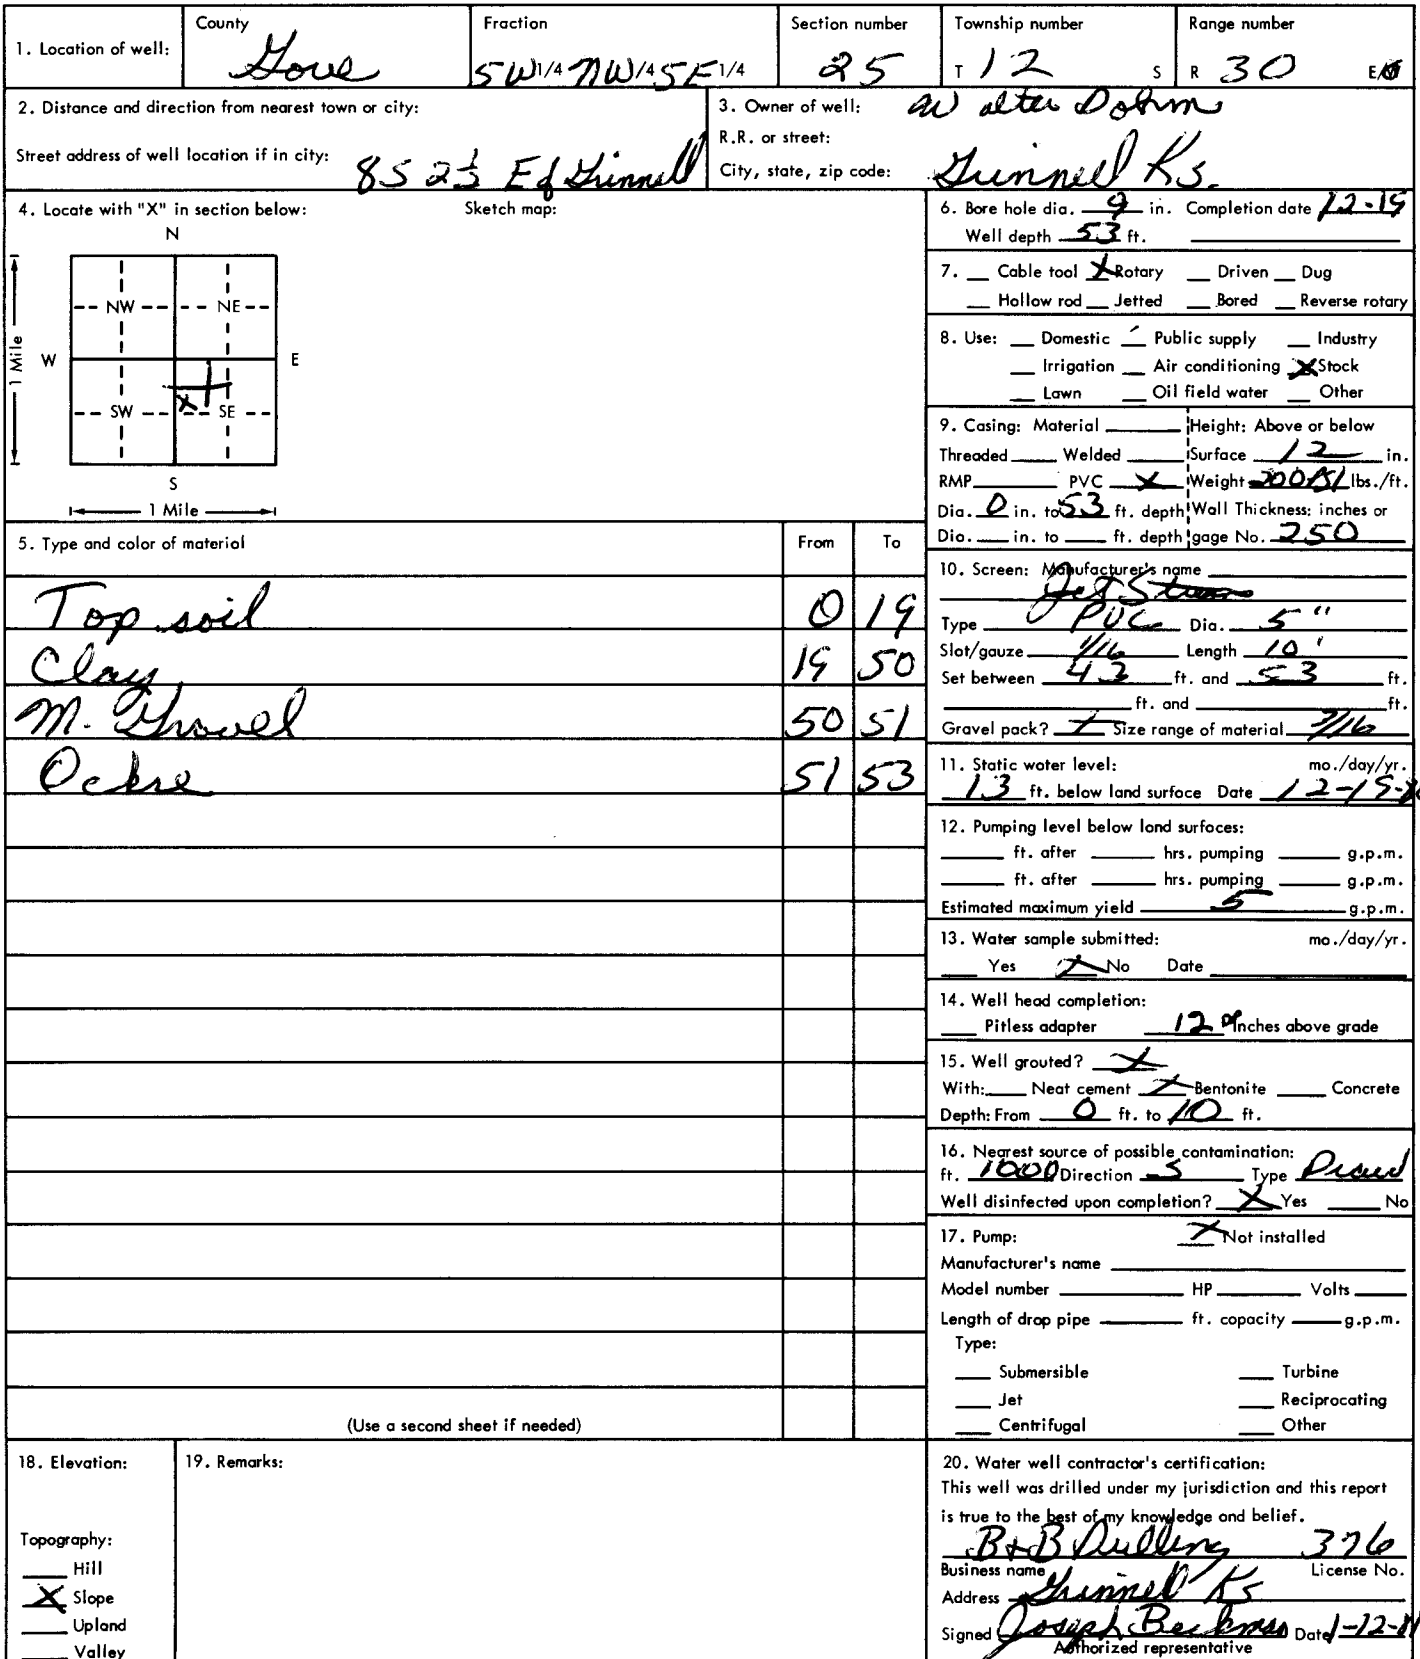 1. Location of well: County Gove Fraction SW 1/4 NW 1/4 SE 1/4 Section number 25 Township number T 12 S Range number R 30 E/W
2. Distance and direction from nearest town or city:
Street address of well location if in city: 8S 2½ E of Grinnell
3. Owner of well: Walter Dohm
R.R. or street:
City, state, zip code: Grinnell Ks.
4. Locate with "X" in section below: Sketch map:
N
NW NE
W E
1 Mile
X
SW SE
S
1 Mile
5. Type and color of material From To
Top soil 0 19
Clay 19 50
M. Gravel 50 51
Ochre 51 53
(Use a second sheet if needed)
6. Bore hole dia. 9 in. Completion date 12-15
Well depth 53 ft.
7. Cable tool X Rotary Driven Dug
Hollow rod Jetted Bored Reverse rotary
8. Use: Domestic Public supply Industry
Irrigation Air conditioning X Stock
Lawn Oil field water Other
9. Casing: Material Height: Above or below
Threaded Welded Surface 12 in.
RMP PVC X Weight 200 PSI lbs./ft.
Dia. 0 in. to 53 ft. depth Wall Thickness: inches or
Dia. in. to ft. depth gage No. 250
10. Screen: Manufacturer's name
Jet Stream
Type PVC Dia. 5"
Slot/gauze 1/16 Length 10'
Set between 43 ft. and 53 ft.
ft. and ft.
Gravel pack? X Size range of material
11. Static water level: mo./day/yr.
13 ft. below land surface Date 12-15-80
12. Pumping level below land surfaces:
ft. after hrs. pumping g.p.m.
ft. after hrs. pumping g.p.m.
Estimated maximum yield 5 g.p.m.
13. Water sample submitted: mo./day/yr.
Yes X No Date
14. Well head completion:
Pitless adapter 12 Inches above grade
15. Well grouted? X
With: Neat cement X Bentonite Concrete
Depth: From 0 ft. to 10 ft.
16. Nearest source of possible contamination:
ft. 1000 Direction S Type Draw
Well disinfected upon completion? X Yes No
17. Pump: X Not installed
Manufacturer's name
Model number HP Volts
Length of drop pipe ft. capacity g.p.m.
Type:
Submersible Turbine
Jet Reciprocating
Centrifugal Other
18. Elevation:
Topography:
Hill
X Slope
Upland
Valley
19. Remarks:
20. Water well contractor's certification:
This well was drilled under my jurisdiction and this report
is true to the best of my knowledge and belief.
B+B Drilling 376
Business name License No.
Address Grinnell Ks
Signed Joseph Beckman Date 1-12-81
Authorized representative